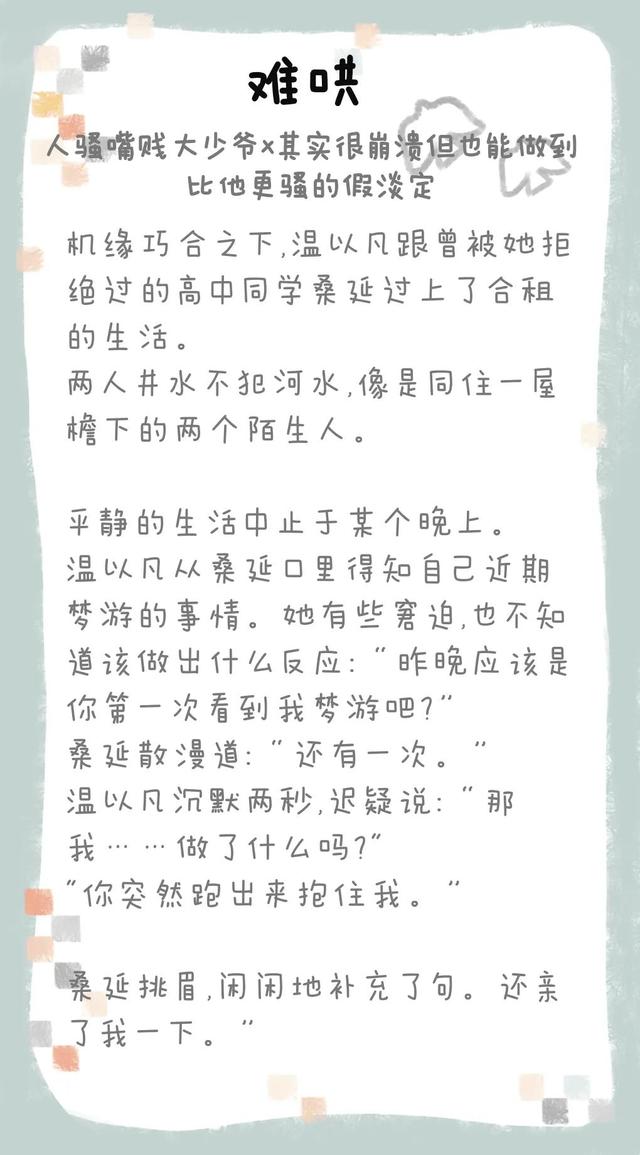 难哄
人骚嘴贱大少爷x其实很崩溃但也能做到
比他更骚的假淡定
机缘巧合之下,温以凡跟曾被她拒
绝过的高中同学桑延过上了合租
的生活。
两人井水不犯河水,像是同住一屋
檐下的两个陌生人。
平静的生活中止于某个晚上。
温以凡从桑延口里得知自己近期
梦游的事情。她有些窘迫,也不知
道该做出什么反应:“昨晚应该是
你第一次看到我梦游吧?”
桑延散漫道:“还有一次。”
温以凡沉默两秒,迟疑说:“那
我……做了什么吗?”
“你突然跑出来抱住我。”
桑延挑眉,闲闲地补充了句。还亲
了我一下。”